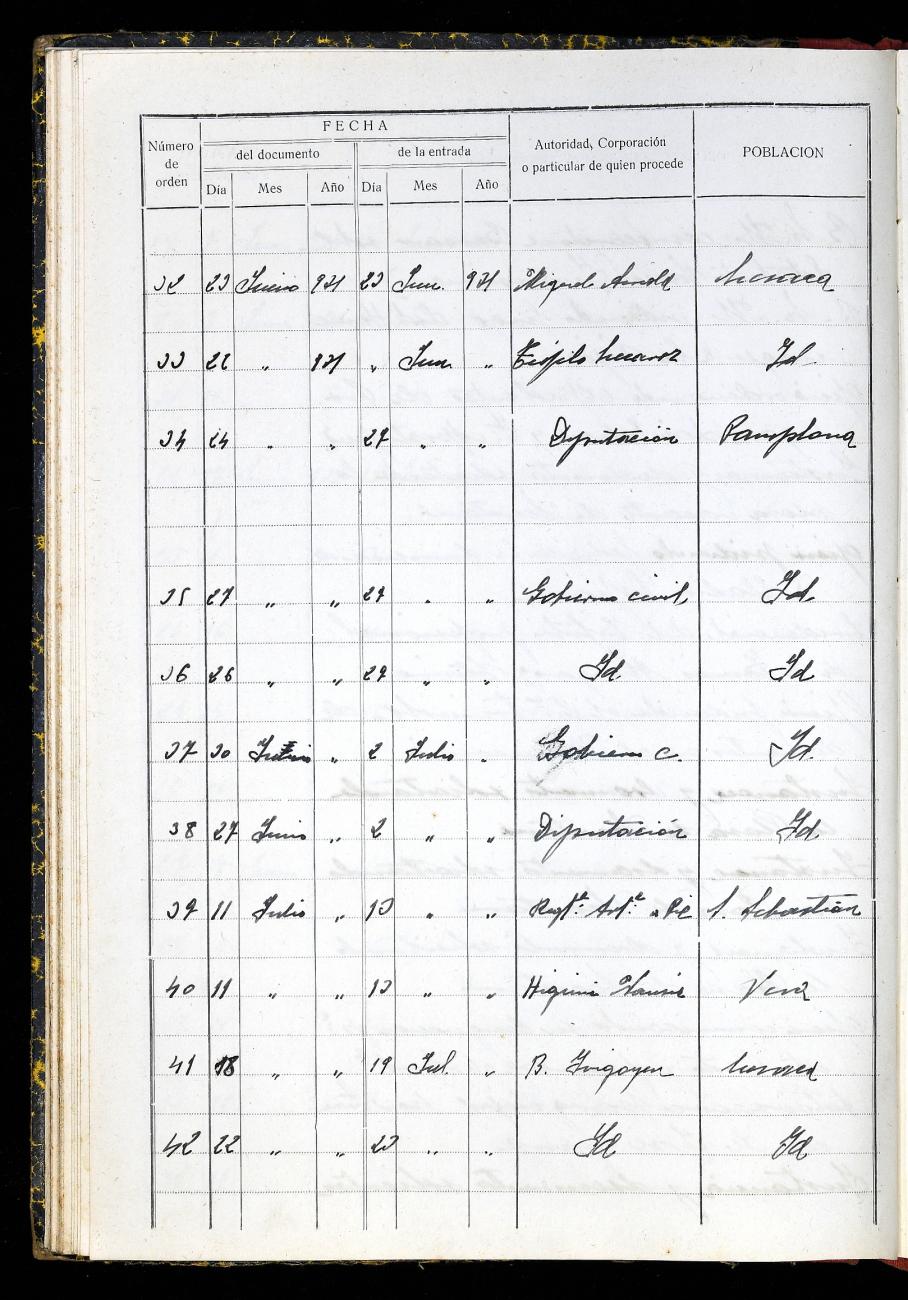 FECHA
Número de orden
del documento
de la entrada
Autoridad, Corporación o particular de quien procede
POBLACION
Día Mes Año Día Mes Año
32 23 Junio 931 23 Jun. 931 Miguel
33 22 „ 931 „ Jun „ Id
34 24 „ „ 27 „ „ Diputación Pamplona
35 27 „ „ 29 „ „ Gobierno civil Id
36 26 „ „ 29 „ „ Id Id
37 30 „ 2 Julio „ Gobierno C. Id.
38 27 Junio „ 2 „ „ Diputación Id
39 11 Julio „ 13 „ „ S. Sebastián
40 11 „ „ 13 „ „ Vera
41 18 „ „ 19 Jul. „ B. Irigoyen
42 22 „ „ 23 „ „ Id Id